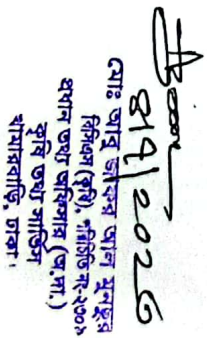 মোঃ আবু জাফর আল মুনছুর
বিসিএস (কৃষি), পরিচিতি নং-
প্রধান তথ্য অফিসার (অ.দা.)
কৃষি তথ্য সার্ভিস
খামারবাড়ি, ঢাকা।